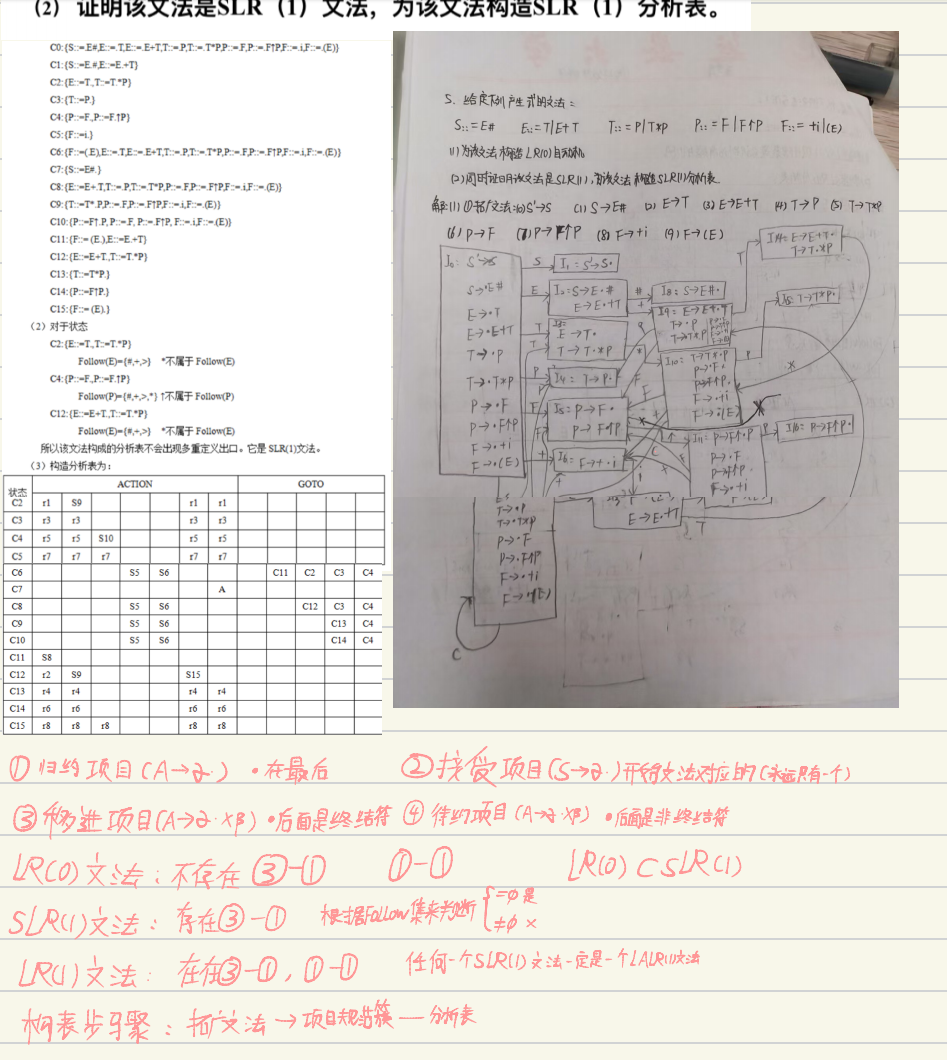 (2) 证明该文法是SLR (1) 文法，为该文法构造SLR (1) 分析表。
C0:{S::=.E#,E::=.T,E::=.E+T,T::=.P,T::=.T*P,P::=.F,P::=.F↑P,F::=.i,F::=.(E)}
C1:{S::=E.#,E::=E.+T}
C2:{E::=T.,T::=T.*P}
C3:{T::=P.}
C4:{P::=F.,P::=F.↑P}
C5:{F::=i.}
C6:{F::=(.E),E::=.T,E::=.E+T,T::=.P,T::=.T*P,P::=.F,P::=.F↑P,F::=.i,F::=.(E)}
C7:{S::=E#.}
C8:{E::=E+.T,T::=.P,T::=.T*P,P::=.F,P::=.F↑P,F::=.i,F::=.(E)}
C9:{T::=T*.P,P::=.F,P::=.F↑P,F::=.i,F::=.(E)}
C10:{P::=F↑.P, P::=.F, P::=.F↑P, F::=.i,F::=.(E)}
C11:{F::= (E.),E::=E.+T}
C12:{E::=E+T.,T::=T.*P}
C13:{T::=T*P.}
C14:{P::=F↑P.}
C15:{F::= (E).}
（2）对于状态
C2:{E::=T.,T::=T.*P}
Follow(E)={#,+,>} *不属于 Follow(E)
C4:{P::=F.,P::=F.↑P}
Follow(P)={#,+,>,*} ↑不属于 Follow(P)
C12:{E::=E+T.,T::=T.*P}
Follow(E)={#,+,>} *不属于 Follow(E)
所以该文法构成的分析表不会出现多重定义出口。它是 SLR(1)文法。
（3）构造分析表为:
状态 ACTION GOTO
C2 r1 S9 r1 r1
C3 r3 r3 r3 r3
C4 r5 r5 S10 r5 r5
C5 r7 r7 r7 r7 r7
C6 S5 S6 C11 C2 C3 C4
C7 A
C8 S5 S6 C12 C3 C4
C9 S5 S6 C13 C4
C10 S5 S6 C14 C4
C11 S8
C12 r2 S9 S15
C13 r4 r4 r4 r4
C14 r6 r6 r6 r6
C15 r8 r8 r8 r8 r8
5. 给定下列产生式的文法:
S::=E# E::=T|E+T T::=P|T*P P::=F|F↑P F::=+i|(E)
(1)为该文法构造LR(0)自动机
(2)同时证明该文法是SLR(1),为该文法构造SLR(1)分析表.
解:(1) (0) S'→S (1) S→E# (2) E→T (3) E→E+T (4) T→P (5) T→T*P
(6) P→F (7) P→F↑P (8) F→+i (9) F→(E)
I0: S'→·S
S→·E#
E→·T
E→·E+T
T→·P
T→·T*P
P→·F
P→·F↑P
F→·+i
F→·(E)
I1: S'→S·
I2: S→E·#
E→E·+T
E→T·
T→T·*P
I4: T→P·
I5: P→F·
P→F·↑P
I6: F→+·i
I8: S→E#·
I9: E→E+·T
T→·P
T→·T*P
I10: T→T*·P
P→·F
P→·F↑P
F→·+i
F→·(E)
I11: P→F↑·P
P→·F
P→·F↑P
F→·+i
I14: E→E+T·
T→T·*P
I15: T→T*P·
I16: P→F↑P·
T→·P
T→·T*P
P→·F
P→·F↑P
F→·+i
F→·(E)
E→E·+T
① 归约项目(A→α·) ·在最后 ②接受项目(S→α·)开始文法对应的(永远只有一个)
③移进项目(A→α·xβ) ·后面是终结符 ④ 待约项目(A→α·Xβ) ·后面是非终结符
LR(0)文法:不存在③-① ①-① LR(0)⊂SLR(1)
SLR(1)文法: 存在③-① 根据Follow集来判断 {=∅ 是
≠∅ ×
LR(1)文法: 存在③-①,①-① 任何一个SLR(1)文法一定是一个LALR(1)文法
构表步骤: 拓广文法→项目规范簇—分析表